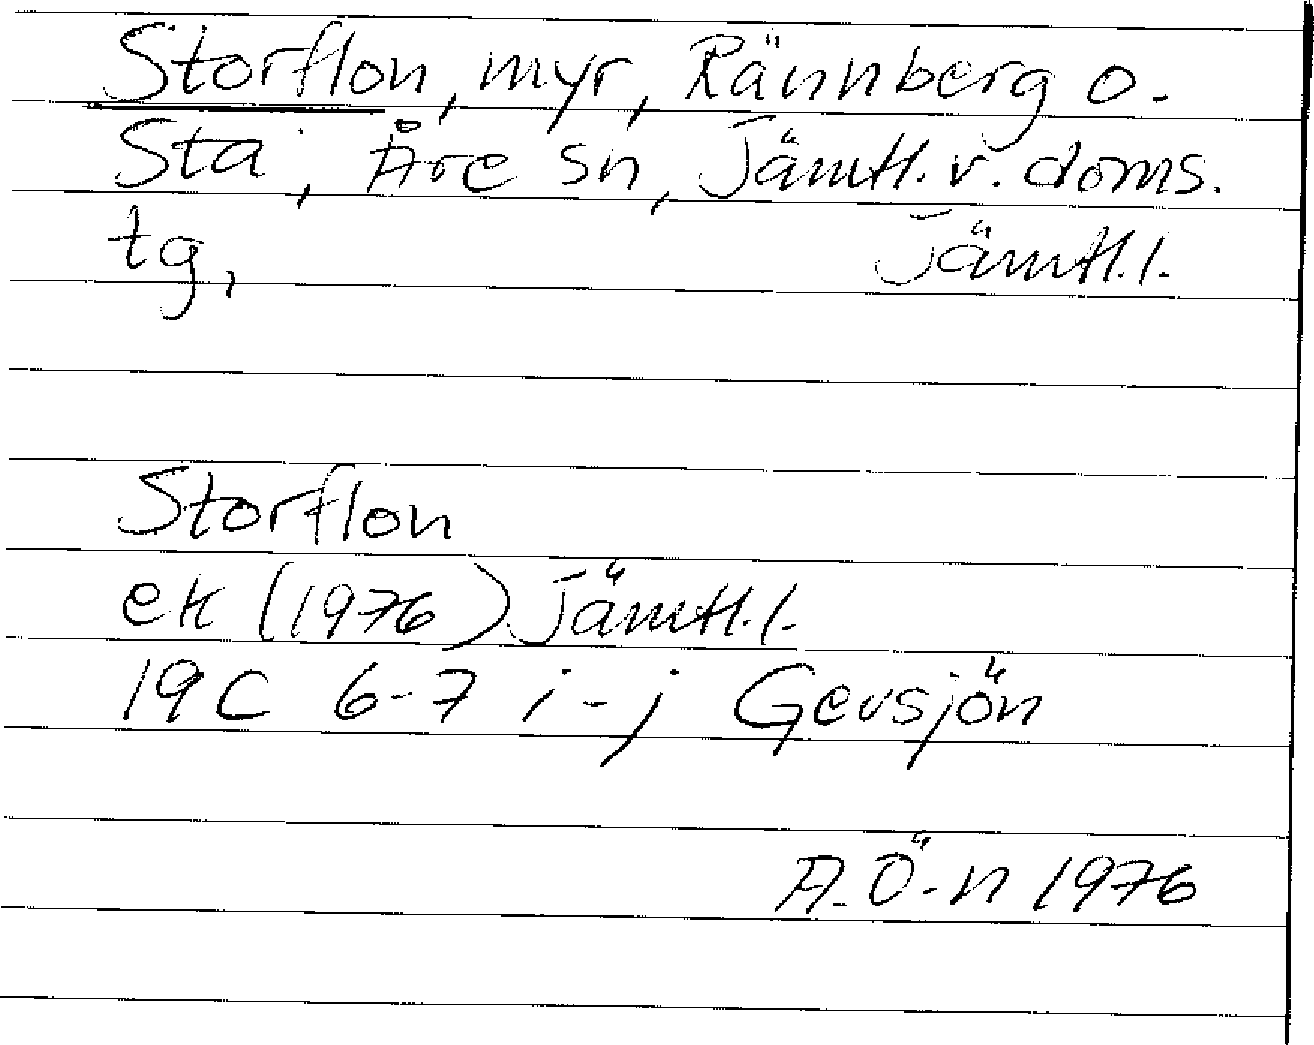 Storflon, myr, Rännberg o.
Sta, Åre sn, Jämtl. v. doms.
tg, Jämtl. l.
Storflon
ek (1976) Jämtl. l.
19C 6-7 i-j Gevsjön
A. Ö-n 1976